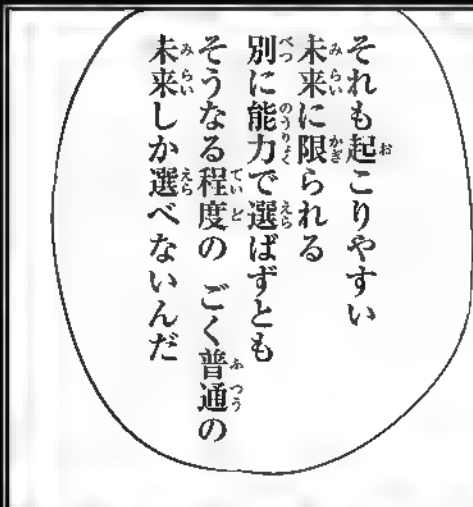 それも起こりやすい
未来に限られる
別に能力で選ばずとも
そうなる程度の ごく普通の
未来しか選べないんだ